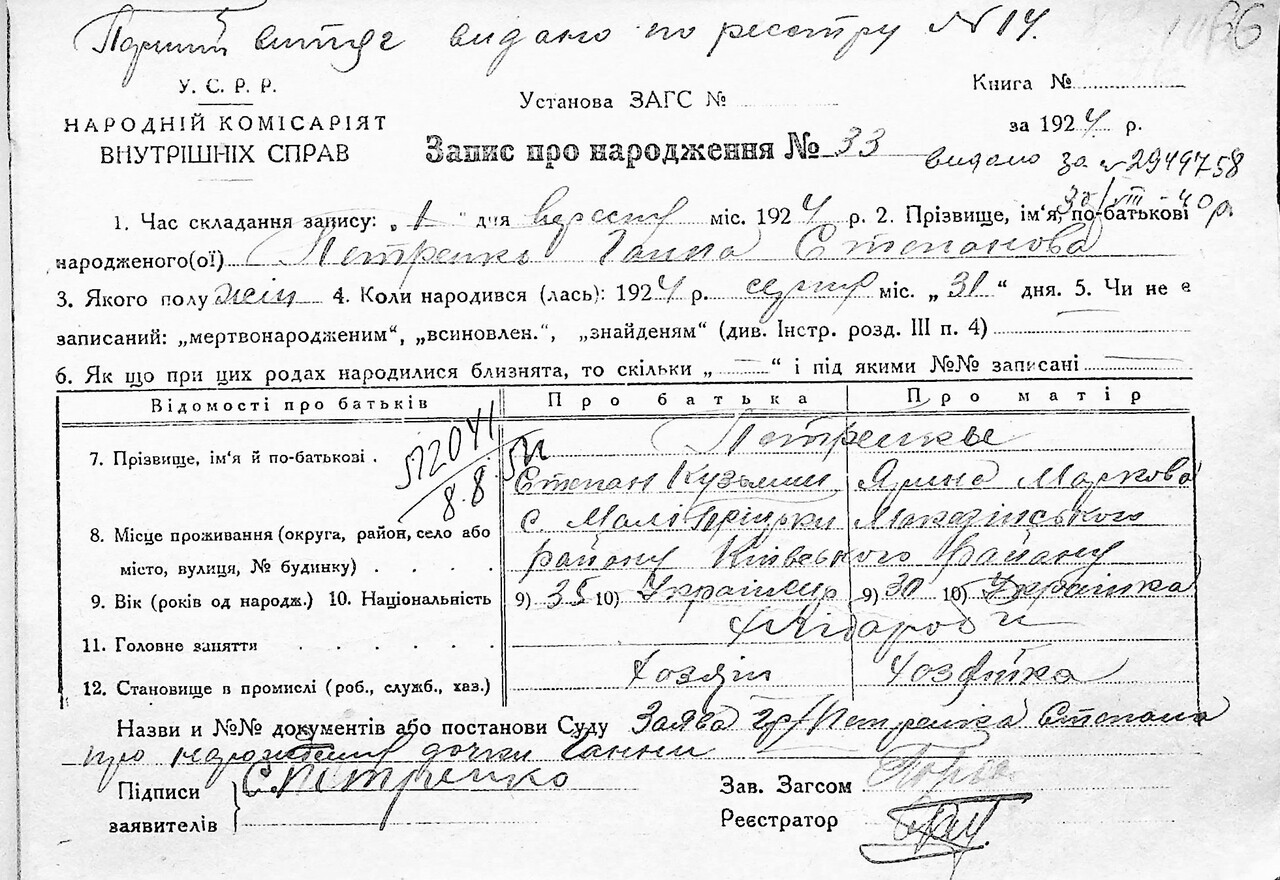 витяг видано по реєстру № 14.
У. С. Р. Р.
НАРОДНІЙ КОМІСАРІЯТ
ВНУТРІШНІХ СПРАВ
Установа ЗАГС №
Книга №
за 1924 р.
Запис про народження № 33
видано за № 2949758
30/VIII - 40 р.
1. Час складання запису: „1" дня вересня міс. 1924 р. 2. Прізвище, ім'я, по-батькові
народженого(ої) Петренко Ганна Степанова
3. Якого полу жін 4. Коли народився (лась): 1924 р. серпня міс. „31" дня. 5. Чи не є
записаний: „мертвонародженим", „всиновлен.", „знайденям" (див. Інстр. розд. III п. 4)
6. Як що при цих родах народилися близнята, то скільки „—" і під якими №№ записані
Відомості про батьків Про батька Про матір
7. Прізвище, ім'я й по-батькові . Петренки
512041
8.8
Степан Кузьмин Ярина Маркова
8. Місце проживання (округа, район, село або с. Малі
місто, вулиця, № будинку) . . . . району Київського району
9. Вік (років од народж.) 10. Національність 9) 35 10) Українець 9) 30 10) Українка
11. Головне заняття . . . . . . Хлібороби
12. Становище в промислі (роб., служб., хаз.) Хозяїн Хозяйка
Назви и №№ документів або постанови Суду Заява гр. Петренка Степана
про народження дочки Ганни
Підписи С. Петренко
заявителів
Зав. Загсом
Реєстратор